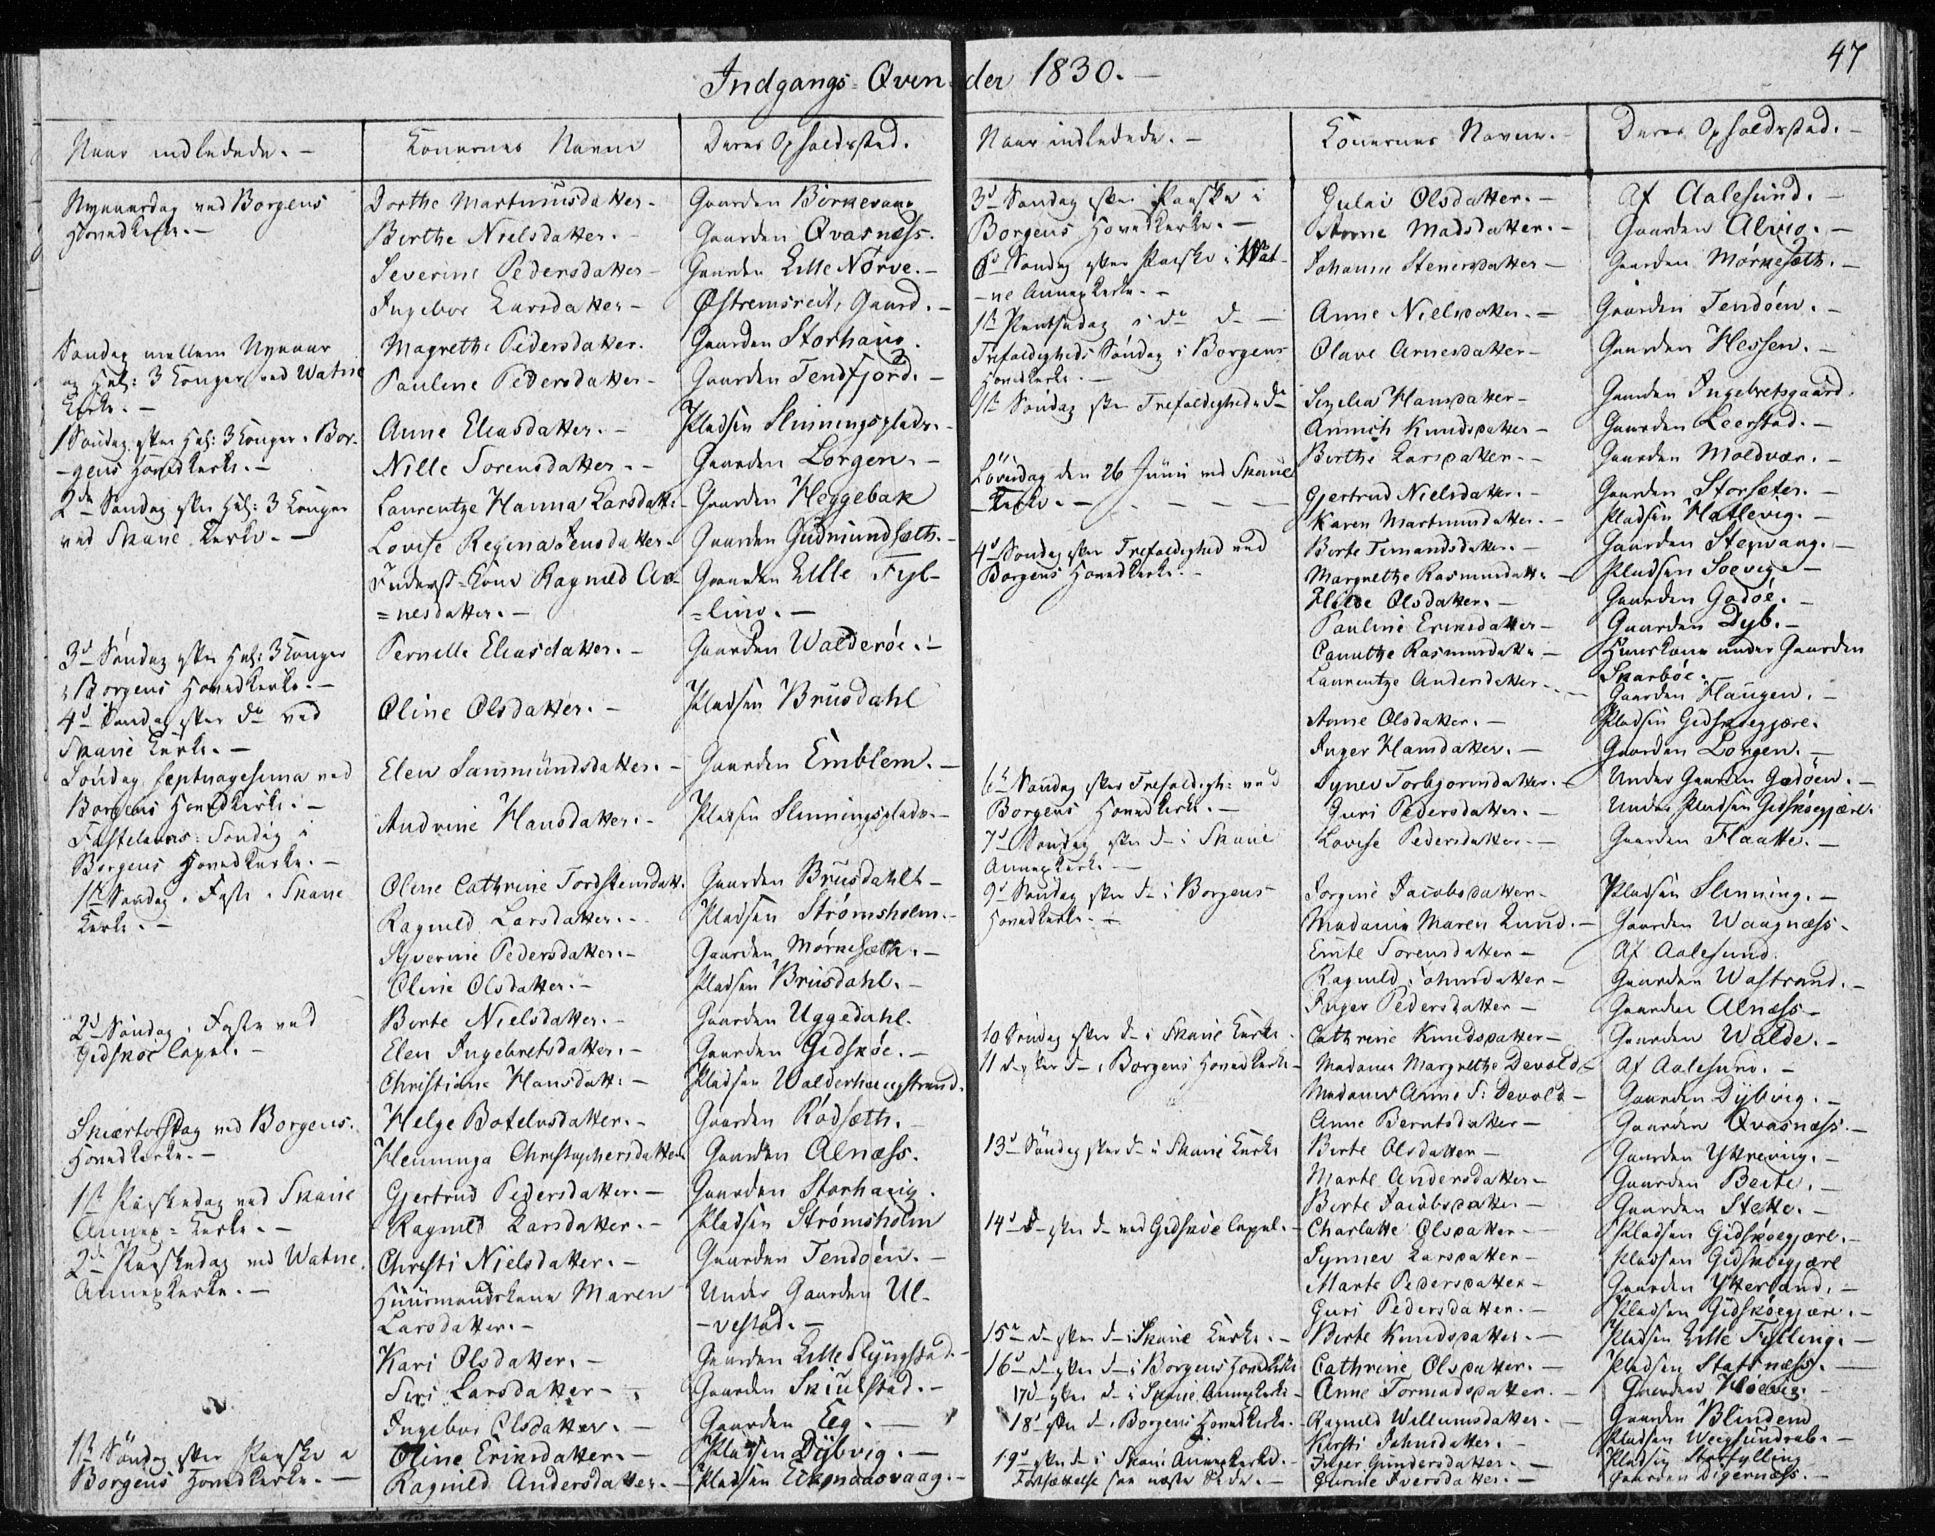 47
Indgangs-Qvinder 1830.-
Naar indledede.-
Konernes Navne
Deres Opholdsted.
Nyaarsdag ved Borgens
Hovedkirke.-
Dorthe Martinusdatter-
Gaarden Birkevaag
Berthe Nielsdatter.-
Gaarden Qvasnæss.
Severine Pedersdatter-
Gaarden Lille Nørve.-
Ingebor Larsdatter-
Østremsreit, Gaard.-
Søndag mellem Nyaar
og Hel: 3 Konger ved Watne
Kirke.-
Magrethe Pedersdatter.
Gaarden Storhaug.
Pauline Pedersdatter-
Gaarden Tendfjord.-
1 Søndag efter Hel: 3 Konger i Bor-
-gens Hovedkirke.-
Anne Eliasdatter.-
Pladsen Slinningsplads.-
Nille Sorensdatter.-
Gaarden Lorgen.-
2den Søndag efter Hel: 3 Konger
ved Skane Kirke.-
Laurentze Hanna Larsdatt:
Gaarden Heggebak
Lovise Regina Jensdatter.
Gaarden Gudmundsæth.-
Inderst-Kone Ragnild Ar-
=nesdatter.-
Gaarden Lille Fyl-
=ling.-
3d Søndag efter Hel: 3 Konger
i Borgens Hovedkirke.-
Pernelle Eliasdatter.-
Gaarden Walderøe.-
4d Søndag efter do ved
Skane Kirke.-
Oline Olsdatter.-
Pladsen Brusdahl
Søndag Septuagesima ved
Borgens Hovedkirke.-
Elen Sammundsdatter.-
Gaarden Emblem.-
Fastelavns: Søndag i
Borgens Hovedkirke.-
Andrine Hansdatter.-
Pladsen Slinningsplads.-
1ste Søndag i Faste i Skane
Kirke.-
Oline Cathrine Tordstensdatt.
Gaarden Brusdahl-
Ragnild Larsdatter.-
Pladsen Strømsholm.-
Syverine Pedersdatter.-
Gaarden Mørkesæth.-
Oline Olsdatter.-
Pladsen Brusdahl.-
2d Søndag i Faste ved
Gidskoe Capel.-
Berte Nielsdatter.-
Gaarden Uggedahl.
Elen Ingebretsdatter.-
Gaarden Gidskøe.-
Christiane Hansdatt:-
Pladsen Walderhaugstrand.
Skiærtorsdag ved Borgens
Hovedkirke.-
Helge Botelvsdatter.-
Gaarden Rødsæth.-
Henninga Christophersdatter
Gaarden Alnæss.
1ste Paaskedag ved Skane
Annex=Kirke.-
Gjertrud Pedersdatter.-
Gaarden Storhaug.
Ragnild Larsdatter.-
Pladsen Strømsholm
2den Paaskedag ved Watne
Annexkirke.-
Christi Nielsdatter.-
Gaarden Tendøen.-
Huusmandskone Maren
Larsdatter.-
Under Gaarden Ul-
-vestad.-
Kari Olsdatter.-
Gaarden Lille Slyngstad.-
Siri Larsdatter-
Gaarden Skiulstad.-
Ingebor Olsdatter.-
Gaarden Eeg.-
1ste Søndag efter Paaske i
Borgens Hovedkirke.-
Oline Eriksdatter.-
Pladsen Dybvig.-
Ragnild Andersdatter.-
Naar indledede.-
Konernes Navne.-
Deres Opholdsted.-
3d Søndag efter Paaske i
Borgens Hovedkirke.-
Gulai Olsdatter.-
Af Aalesund.-
Anne Madsdatter.-
Gaarden Alvig.-
Søndag efter Paaske i Wat-
-ne Annexkirke.-
Johanne Stenersdatter-
Gaarden Mørkesæth.-
1ste Pintsedag i do d-
Anne Nielsdatter.-
Gaarden Tendøen.-
Trefoldigheds Søndag i Borgens
Hovedkirke.-
Olave Arnesdatter-
Gaarden Hessen.-
1ste Søndag efter Trefoldigheds do
Hansdatter-
Gaarden Ingebretsgaard.
Annich Knudsdatter-
Gaarden Leerstad.-
Berthe Larsdatter.-
Gaarden Moldvær.-
Løverdag den 26 Juni ved Skane
Kirke.-
Gjertrud Nielsdatter.-
Gaarden Storsæter.-
Karen Martinusdatter.-
Pladsen Hatlevig.-
4d Søndag efter Trefoldighed ved
Borgens Hovedkirke.-
Berte Timandsdatter.-
Gaarden Stepvaag.-
Margrethe Rasmusdatt:-
Pladsen Soevig.-
Hilde Olsdatter.-
Gaarden Godøe.-
Pauline Eriksdatter-
Gaarden Dyb.-
Canuthe Rasmusdatter-
Huuskone under Gaarden
Skarbøe.
Laurentze Andersdatter.-
Gaarden Haugen.-
Anne Olsdatter.-
Pladsen Gidskoegjære.
Inger Hansdatter.-
Gaarden Lorgen.-
6te Søndag efter Trefoldigh: ved
Borgens Hovedkirke.-
Synev Torbjørnsdatter.-
Under Gaarden Godøen.-
Guri Pedersdatter.-
Under Pladsen Gidskøegjære.
7d Søndag efter d- i Skane
Annexkirke-
Lovise Pedersdatter-
Gaarden Flaatte.-
9d Søndag efter d- i Borgens
Hovedkirke.-
Jorgine Jacobsdatter-
Pladsen Slinning.-
Madame Maren Lund.-
Gaarden Waagnæss.
Emte Sorensdatter-
Af Aalesund.
Ragnild Johnsdatter-
Gaarden Wastrand.-
Inger Pedersdatter-
Gaarden Alnæss-
10 Søndag efter d- i Skane Kirke
Cathrine Knudsdatter-
Gaarden Walde.-
11 d- efter d- i Borgens Hovedkirke-
Madame Margrethe Devold-
Af Aalesund.-
Madame Anne S: Devold-
Gaarden Dybvig.-
Anne Berntsdatter-
Gaarden Qvasnæss.-
13d Søndag efter d- i Skane Kirke
Berte Olsdatter-
Gaarden Yttrevig.-
Marte Andersdatter-
Gaarden Beite.-
Berte Jacobsdatter-
Gaarden Stette.-
14d d- efter d- ved Gidskøe Capel.-
Charlotte Olsdatter-
Pladsen Gidskøegjære.-
Synnev Larsdatter-
Pladsen Gidskøegjære
Marte Pedersdatter-
Gaarden Ytterland.-
Guri Pedersdatter.-
Pladsen Gidskøegjære.-
15de d- efter d- i Skane Kirke.-
Berte Knudsdatter.-
Pladsen Lille Fylling.-
16d d- efter d- i Borgens Hovedkirke
Cathrine Olsdatter.-
Pladsen Statsnæss.-
17d- efter d- i Skane Annexkirke-
Anne Tormodsdatter.-
Gaarden Høevig.-
18d efter d- i Borgens Hovedkirke.-
Ragnild Willumsdatter.-
Gaarden Blindem
Kirsti Johnsdatter.-
Pladsen Weegsundvab.-
19d efter d- i Skane Annexkirke.-
Inger Gundersdatter.-
Pladsen Storfylling
Fortsættelse paa næste Side.-
Gurine Iversdatter.-
Gaarden Digernæss.-